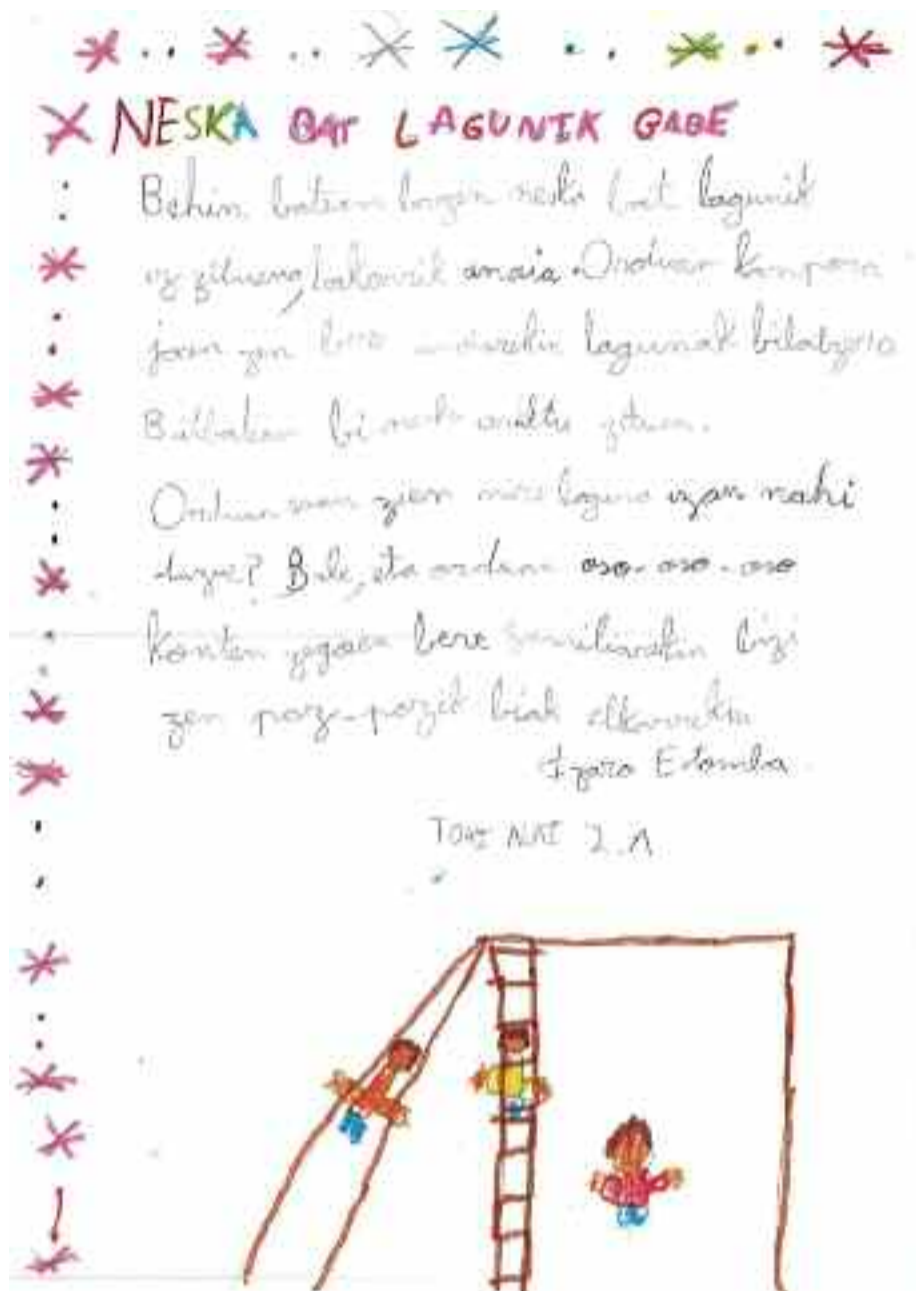 NESKA BAT LAGUNIK GABE
Behin batean bazen neska bat lagunik
ez zituena, bakarrik anaia. Orduan kanpora
joan zen bere anaiarekin lagunak bilatzera
bi neska aurkitu zituen.
Orduan esan zien nire laguna izan nahi
duzue? Bale, eta orduan oso-oso-oso
konten zegoen bere familiarekin bizi
zen poz-pozik biak elkarrekin
Izaro
2.A